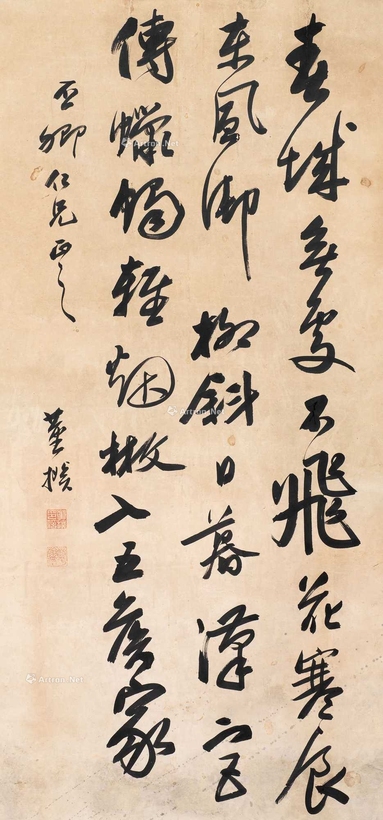 春城無處不飛花寒食
東風御柳斜日暮漢宮
傳蠟燭輕烟散入五侯家
卿仁兄正之
董
Artron.Net
Artron.Net
Artron.Net